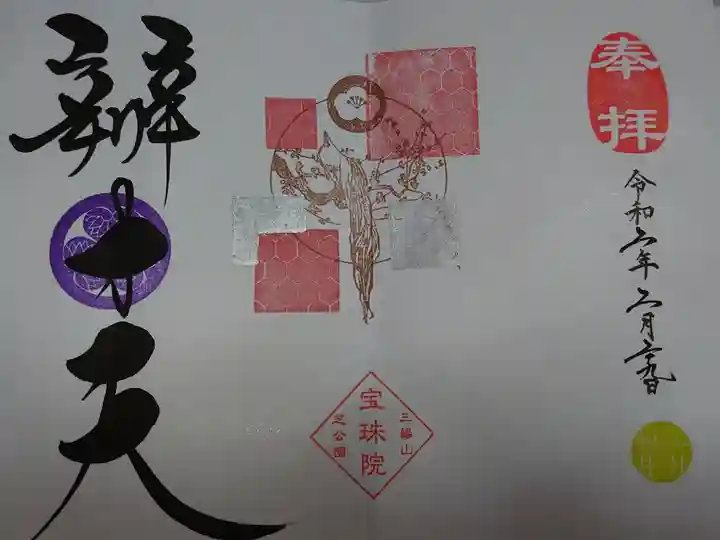 奉拝
令和二年二月二十九日
三縁山
宝珠院
芝公園
辨才天